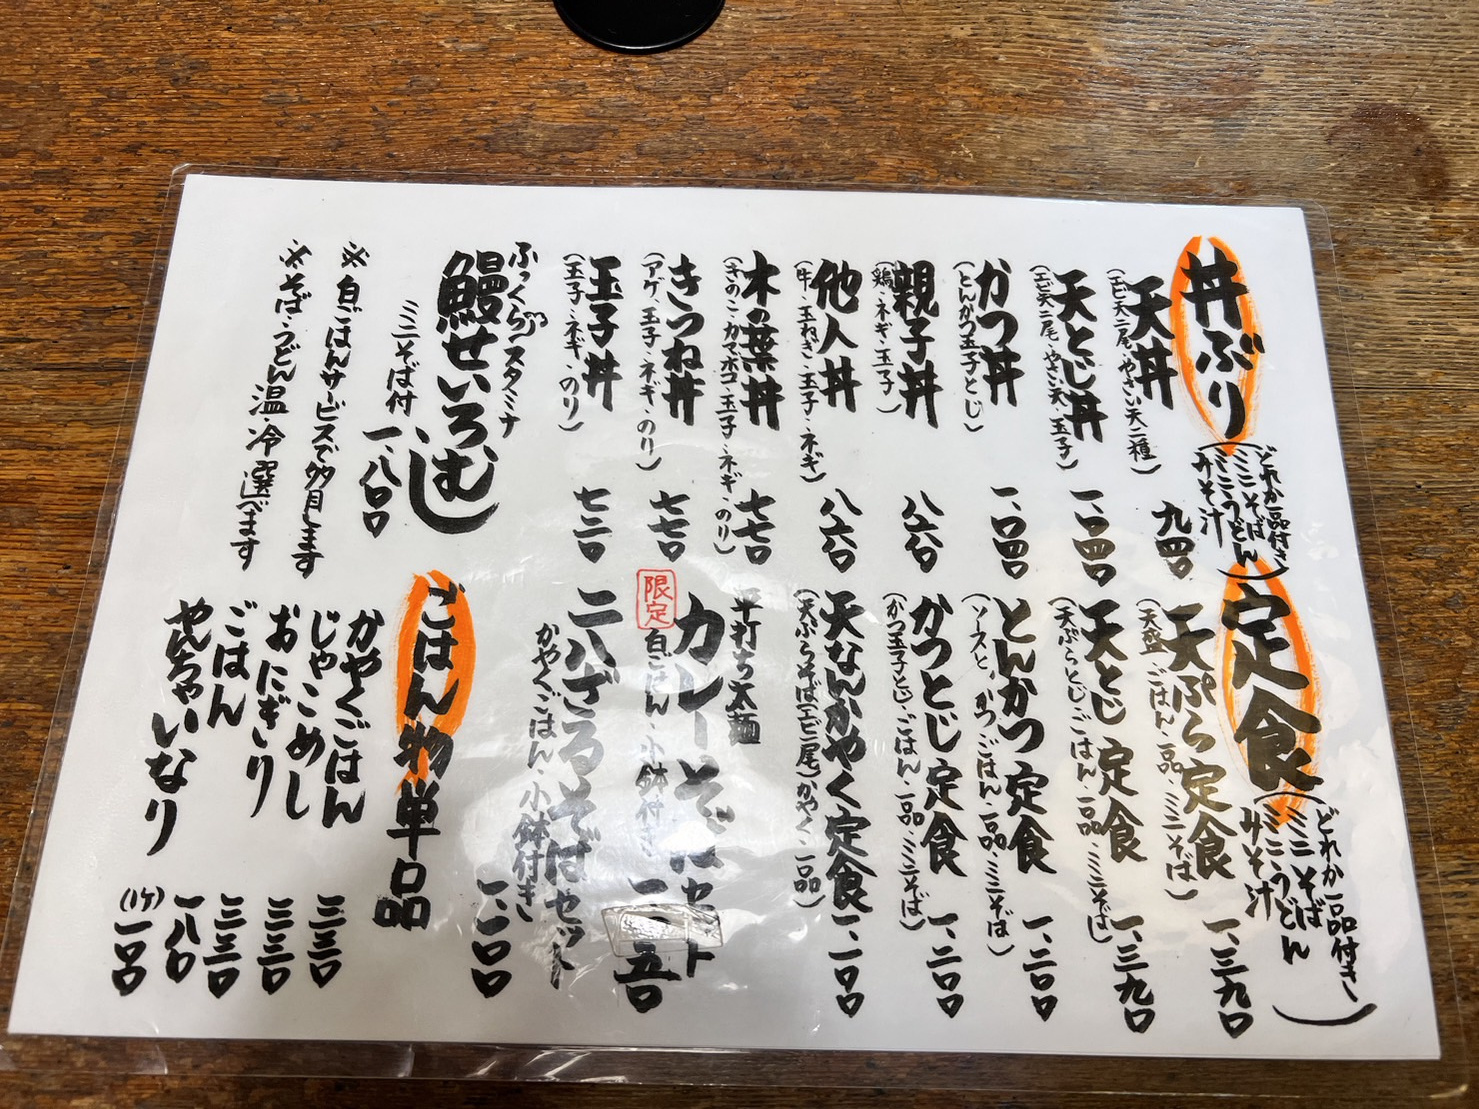 丼ぶり
(どれか一品付き
ミニそば
ミニうどん
みそ汁)
天丼
(エビ天二尾・やさい天二種)
九四〇
天とじ丼
(エビ天二尾・やさい天・玉子)
一、〇四〇
かつ丼
(とんかつ玉子とじ)
一、〇四〇
親子丼
(鶏・ネギ・玉子)
八六〇
他人丼
(牛・玉ねぎ・玉子・ネギ)
八六〇
木の葉丼
(きのこ・カマボコ・玉子・ネギ・のり)
七七〇
きつね丼
(アゲ・玉子・ネギ・のり)
七七〇
玉子丼
(玉子・ネギ・のり)
七二〇
ふっくらスタミナ
鰻せいろむし
ミニそば付
一、八〇〇
※白ごはんサービスで多月します
※そば・うどん温冷選べます
定食
(どれか一品付き
ミニそば
ミニうどん
みそ汁)
天ぷら定食
(天盛・ごはん・一品・ミニそば)
一、三九〇
天とじ定食
(天ぷらとじ・ごはん・一品・ミニそば)
一、三九〇
とんかつ定食
(ソースとんかつ・ごはん・一品・ミニそば)
一、二〇〇
かつとじ定食
(かつ玉子とじ・ごはん・一品・ミニそば)
一、二〇〇
天なんかやく定食
(天ぷらそば(エビ一尾)かやく・一品)
一、一〇〇
平打ち太麺
カレーそばセット
限定
白ごはん・小鉢付き
五〇
二八ざるそばセット
かやくごはん・小鉢付き
一、一〇〇
ごはん物単品
かやくごはん
三三〇
じゃこめし
三三〇
おにぎり
三三〇
ごはん
一八〇
やんちゃいなり
(1ケ)一〇〇